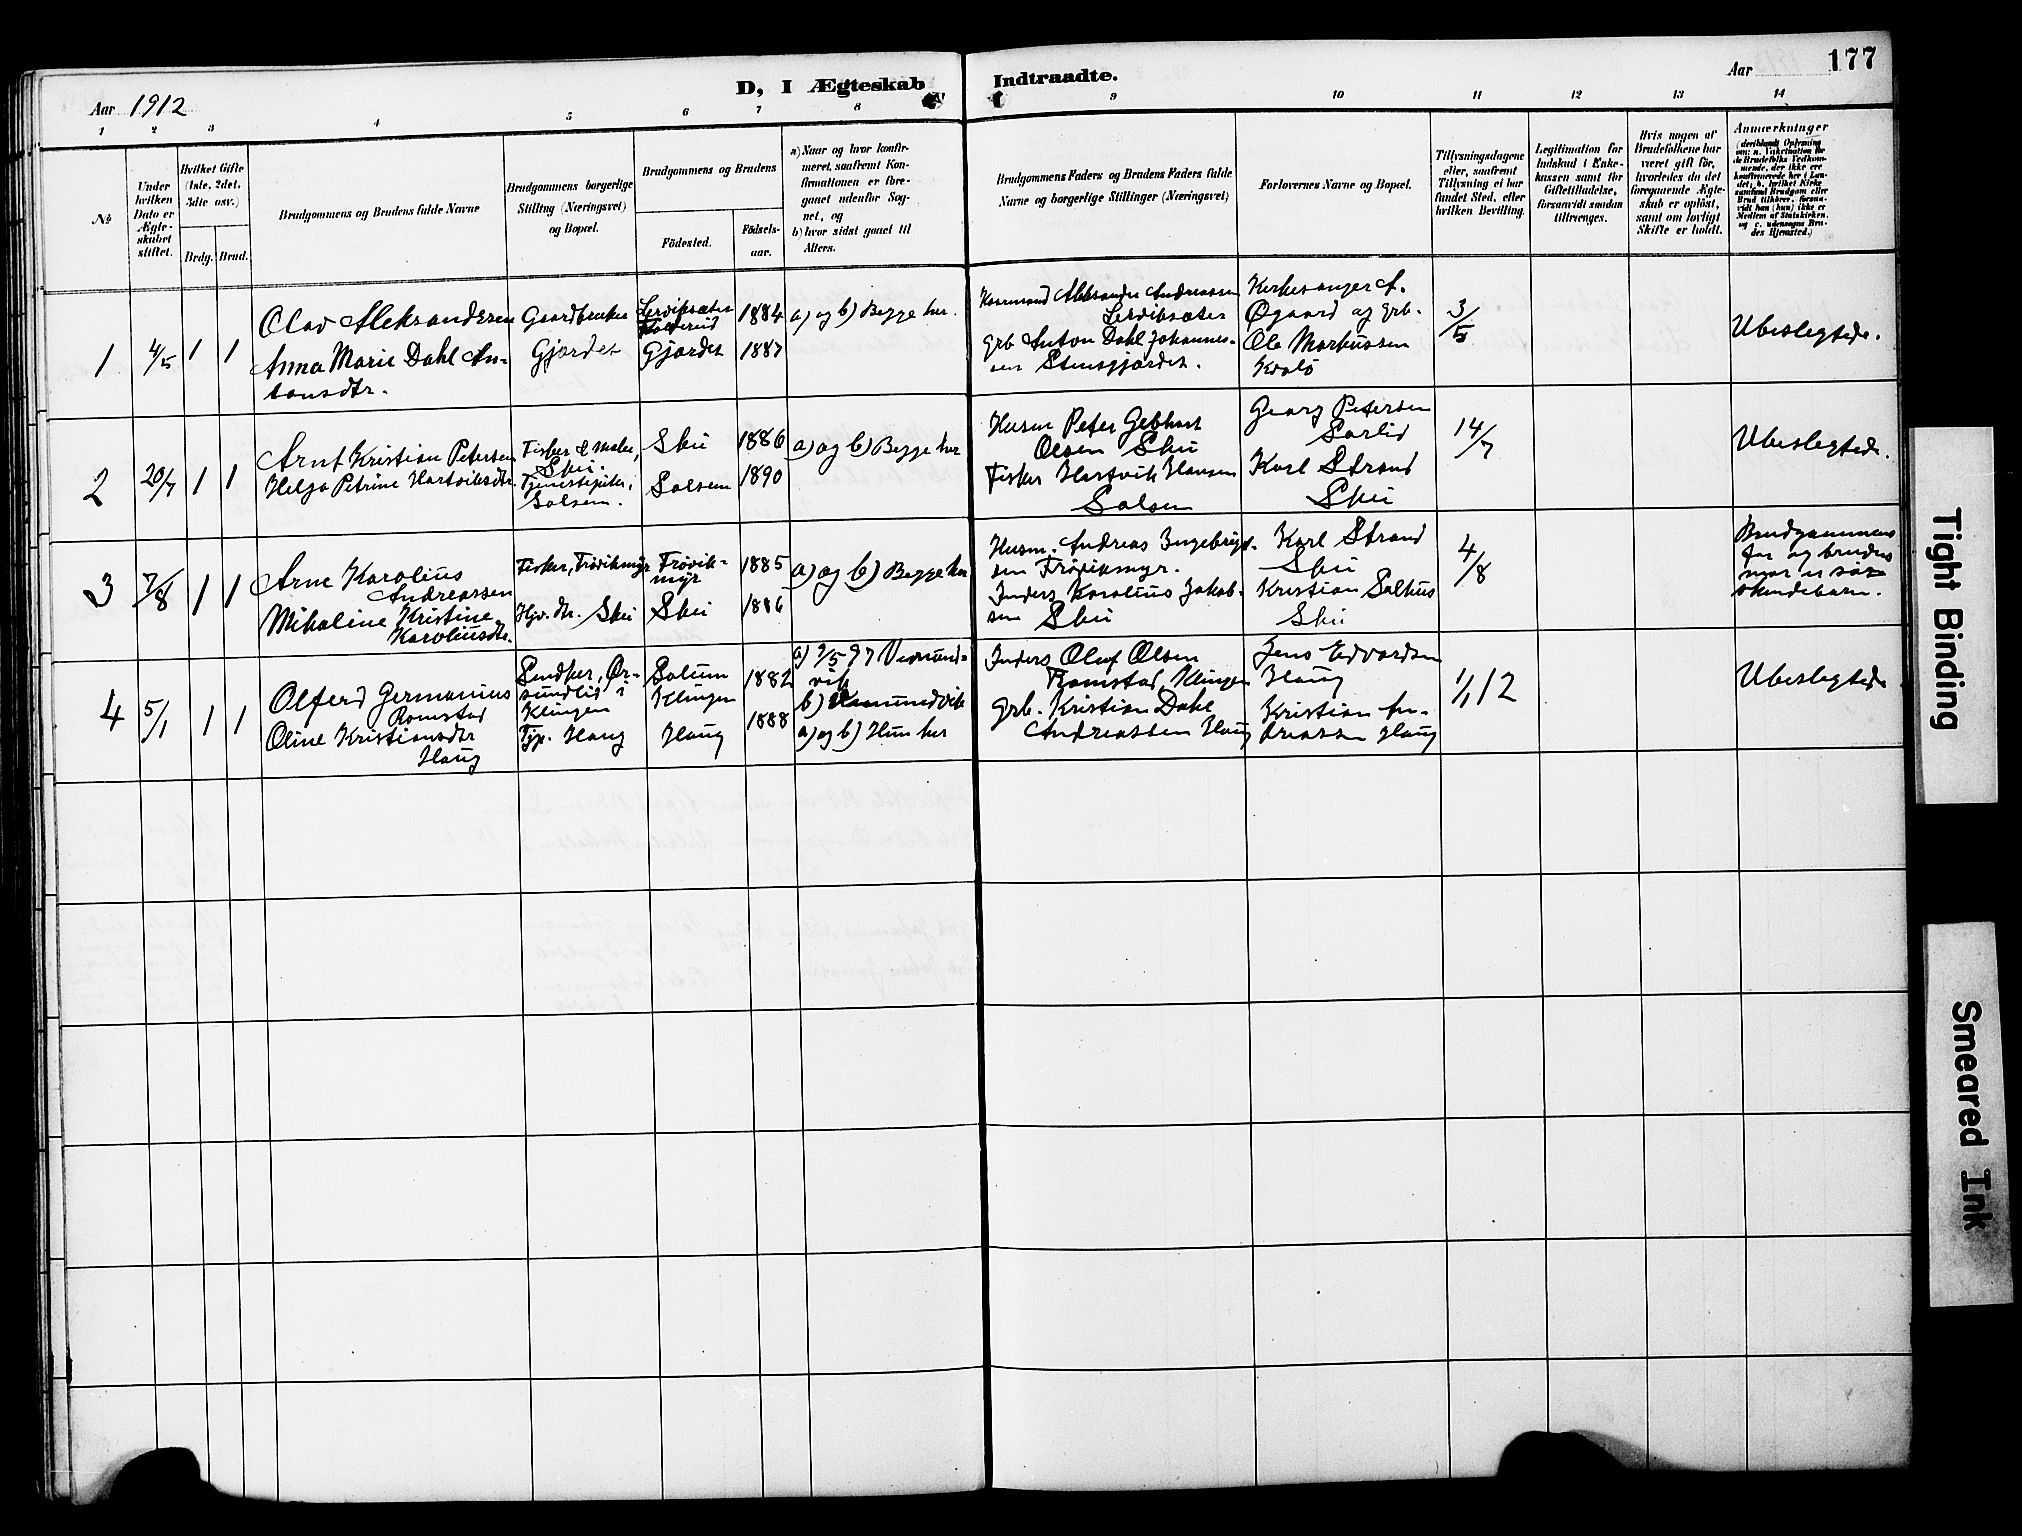 177
D, I Ægteskab Indtraadte.
Aar 1912
Aar
1 2 3 4 5 6 7 8 9 10 11 12 13 14
No
Under hvilken Dato er Ægteskabet stiftet.
Hvilket Gifte (1ste, 2det, 3die osv.)
Brdg. Brud.
Brudgommens og Brudens fulde Navne
Brudgommens borgerlige Stilling (Næringsvei) og Bopæl.
Brudgommens og Brudens
Födested.
Födselsaar.
a) Naar og hvor konfirmeret, saafremt Konfirmationen er foregaaet udenfor Sognet, og
b) hvor sidst gaaet til Alters.
Brudgommens Faders og Brudens Faders fulde Navne og borgerlige Stillinger (Næringsvei)
Forlovernes Navne og Bopæl.
Tillysningsdagene eller, saafremt Tillysning ei har fundet Sted, efter hvilken Bevilling.
Legitimation for Indskud i Enkekassen samt for Giftetilladelse, forsaavidt saadan tiltrænges.
Hvis nogen af Brudefolkene har været gift för, hvorledes da det foregaaende Ægteskab er oplöst, samt om lovligt Skifte er holdt.
Anmærkninger
1
4/5
1 1
Olav Aleksandersen
Anna Marie Dahl An-
tonsdtr.
Gaardbruker
Gjørdet
Gjørdet
1884
1887
a) og b) Begge her.
Aleksander Andreassen
Grb Anton Dahl Johannes-
sen Stensgjørdet.
Kirkesanger A.
Øgaard og Grb.
Ole Markussen
Kvalø
3/5
Ubeslegtede.
2
20/7
1 1
Arnt Kristian Petersen
Helga Petrine Hartviksdtr.
Fisker & maler,
Skei.
Tjenestepike,
Solsem.
Skei
Solsem
1886
1890
a) og b) Begge her
Husm Peter Gebhart
Olsen Skei
Fisker Hartvik Hansen
Solsem
Georg Petersen
Sørlid
Karl Strand
Skei
14/7
Ubeslegtede.
3
7/8
1 1
Arne Karolius
Andreassen
Mikaline Kristine
Karoliusdtr.
Fisker, Frøvikmyr
Hjv. dtr. Skei
Frøvik-
myr
Skei
1885
1886
a) og b) Begge her
Husm. Andreas Ingebrigt-
sen Frøvikmyr.
Inders Karolius Jakob-
sen Skei
Karl Strand
Skei
Kristian Solhus
Skei
4/8
Brudgommens
far og brudens
mor er søs-
skendebarn.
4
5/1
1 1
Olferd Germanius
Romstad
Oline Kristiansdtr
Haug
Klingen
Tjp. Haug
Solum
Klingen
Haug
1882
1888
a) 9/5 97 Vemund-
vik
b) Vemundvik
a) og b) Hun her
Inders Oluf Olsen
Romstad, Klingen
Grb. Kristian Dahl
Andreassen Haug
Jens Edvardsen
Haug
Kristian An-
dreassen Haug
1/1 12
Ubeslegtede
Tight Binding
Smeared Ink